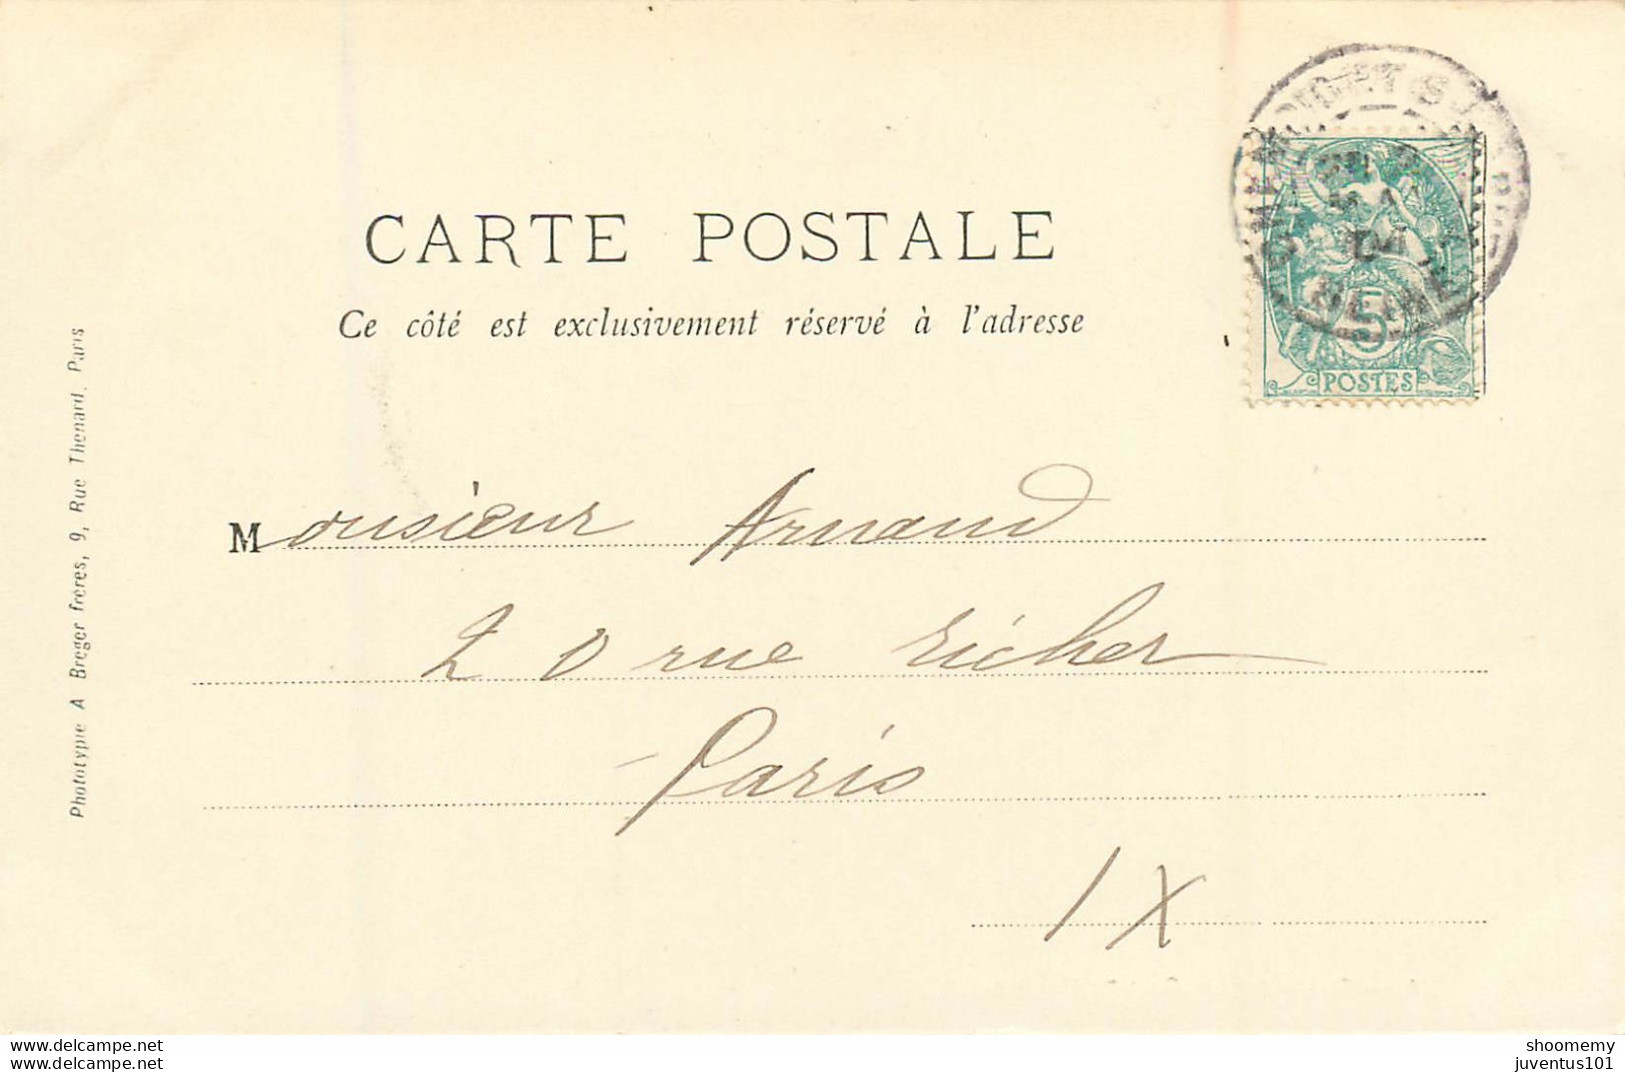 CARTE POSTALE
Ce côté est exclusivement réservé à l'adresse
Phototypie A Breger frères, 9, Rue Thenard, Paris
5
POSTES
04
SEINE
Monsieur Arnaud
20 rue richer
Paris
IX
www.delcampe.net
www.delcampe.net
shoomemy
juventus101